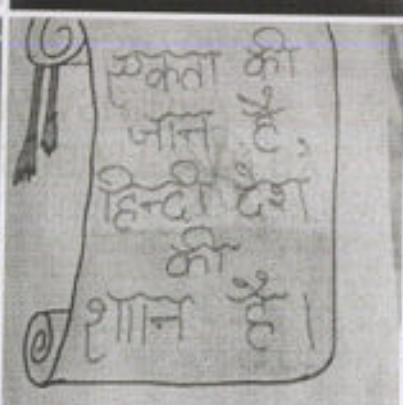 एकता की
जान है,
हिन्दी देश
की
शान है।